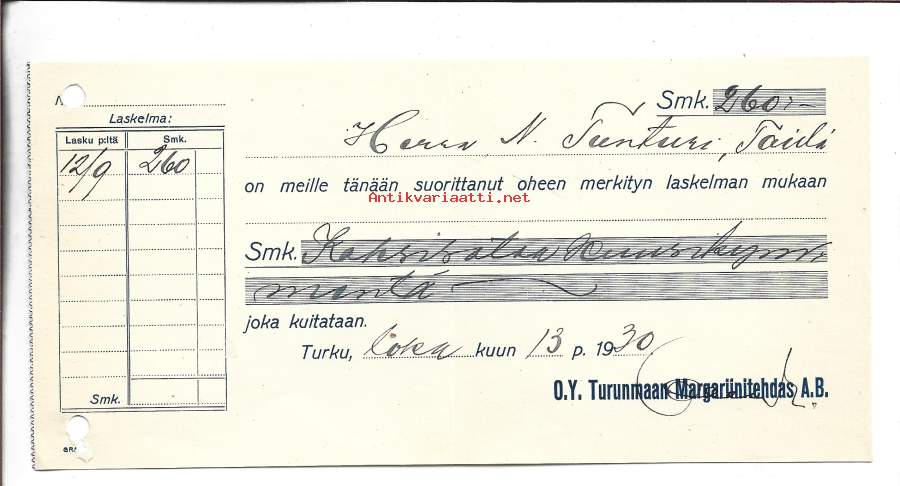 Laskelma:
Lasku p:ltä Smk.
12/9 260
Smk.
Smk. 260:-
Herra N. Tienturi,
on meille tänään suorittanut oheen merkityn laskelman mukaan
Antikvariaatti.net
Smk. Kaksisataa kuusikym-
mentä
joka kuitataan.
Turku, loka kuun 13 p. 1930
O.Y. Turunmaan Margariinitehdas A.B.